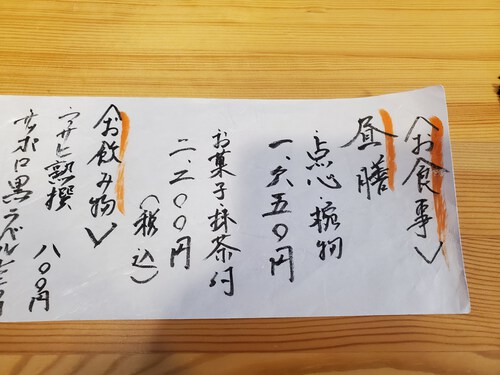 〈お食事〉
昼膳
点心・椀物
一、六五〇円
お菓子抹茶付
二、二〇〇円
（税込）
〈お飲み物〉
アサヒ熟撰 八〇〇円
サッポロ黒ラベル